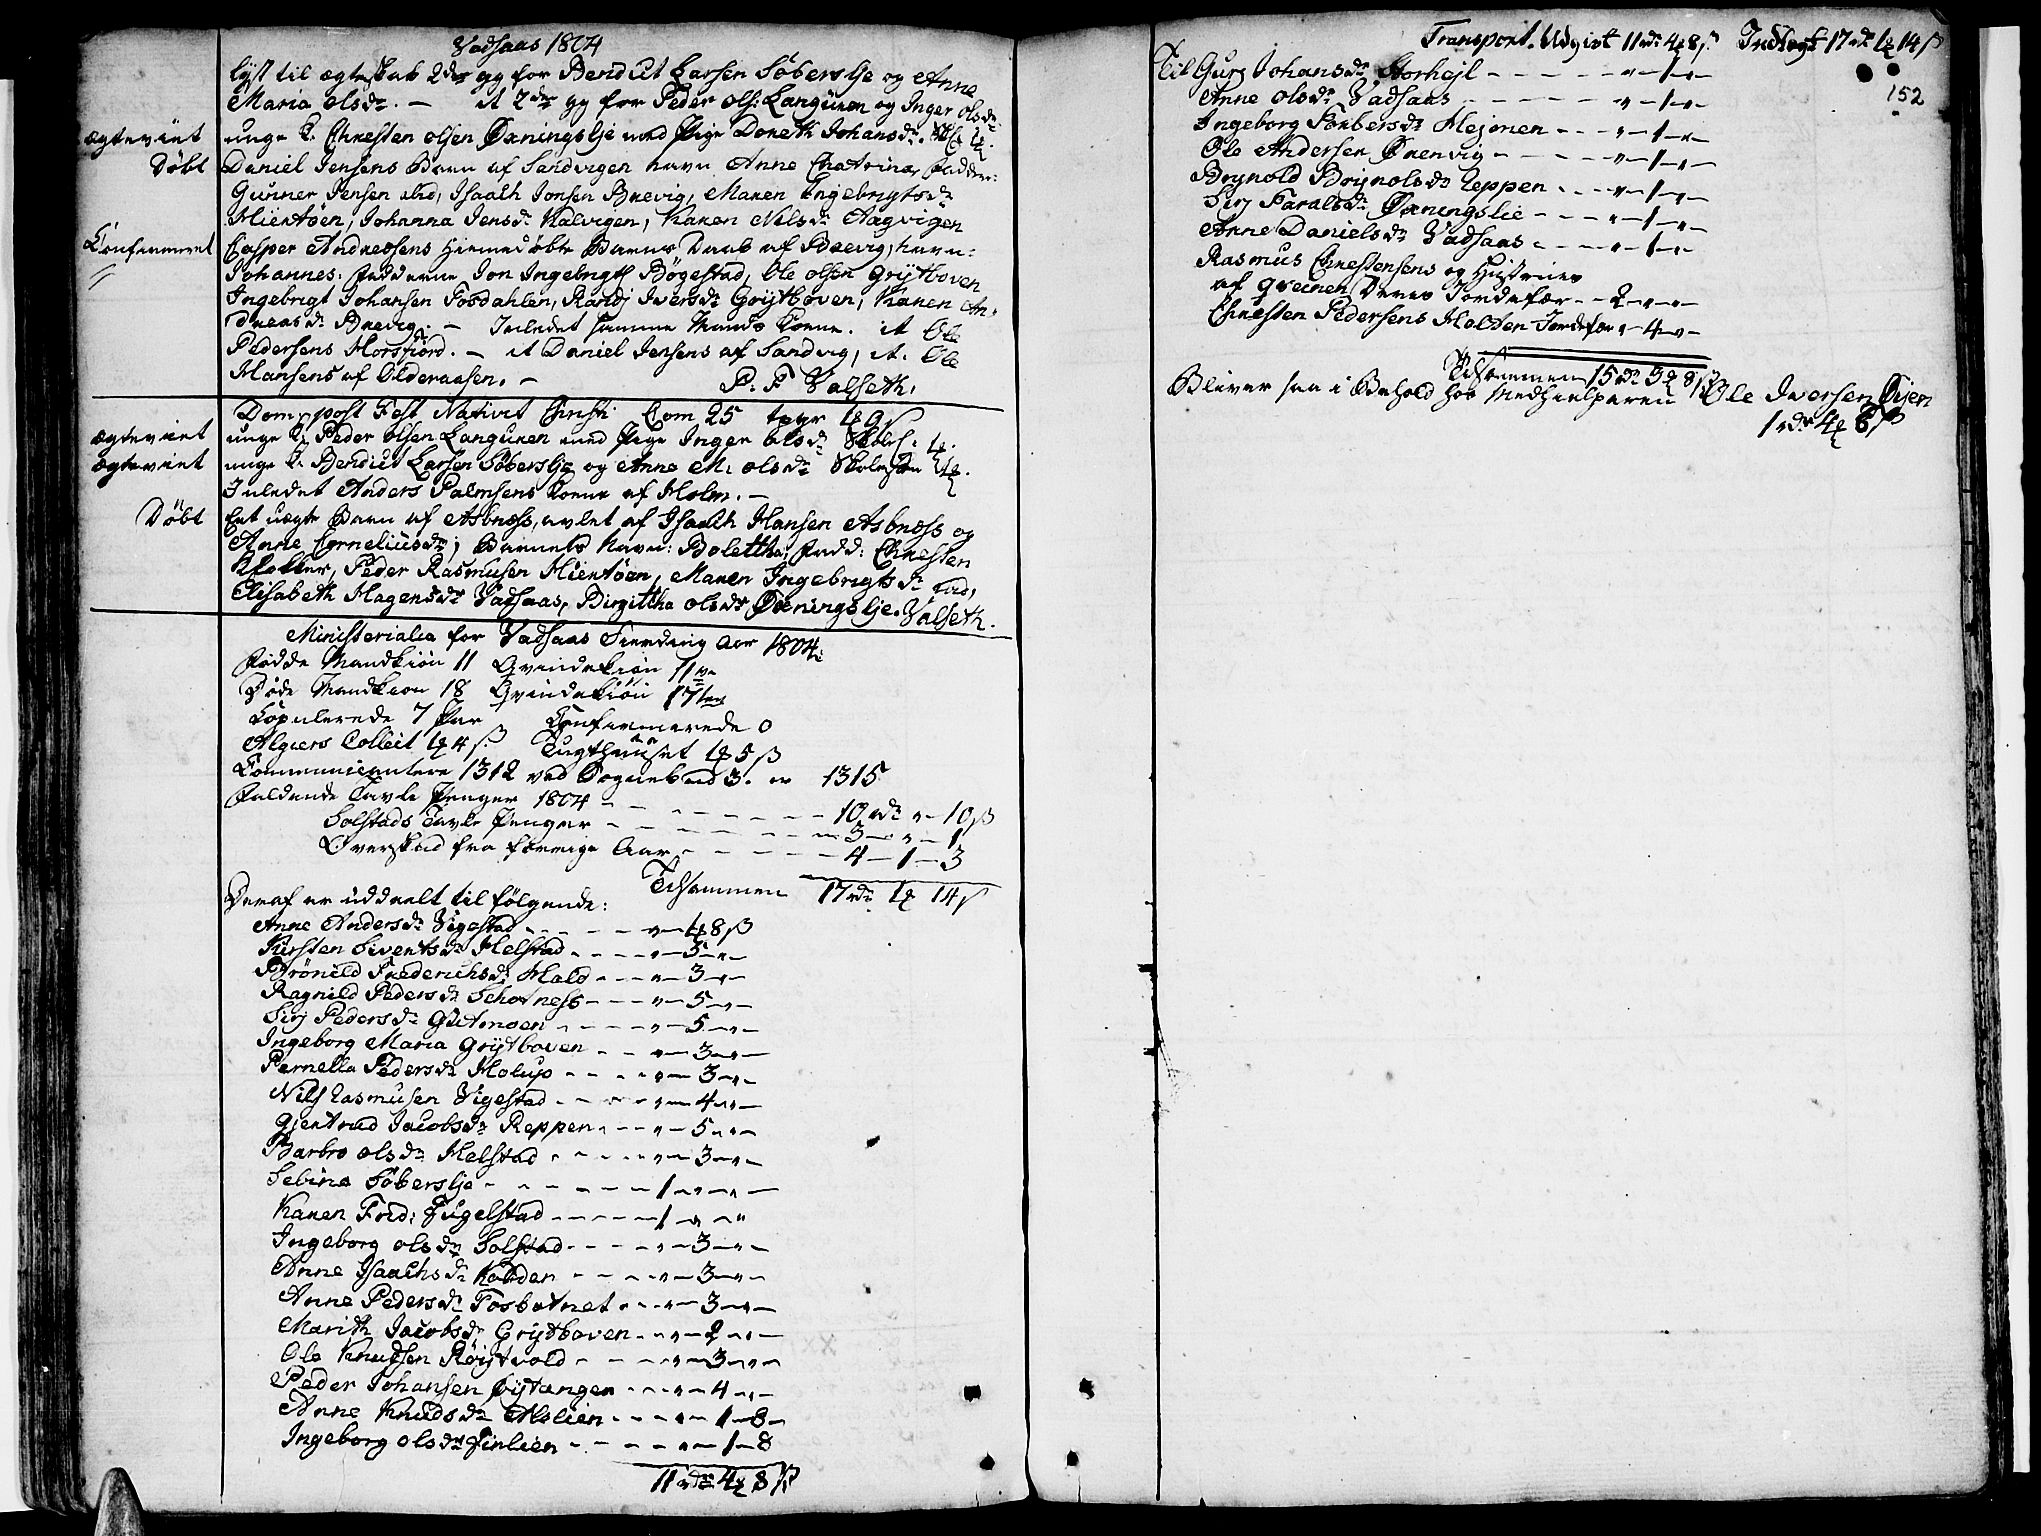 Vadsaas 1804
lyst til ægteskab 2den gg for Bendict Larsen Søberslje og Anne
Maria olsdr. — it 2den gg for Peder ols: Languren og Inger olsdr
ægteviet unge K. Christen olsen Øxningslje med Pige Dorteth Johansdr.
Døbt Daniel Jensens Barn af Sandvigen navn Anne Chatrina, Fadder:
Gunner Jensen ibid, Isaach Jonsen Brevig, Maren Ingebrigtsdr
Hientøen, Johanna Jensdr Kalvigen, Karen Nilsdr Aagvigen
Confirmeret Casper Andreassens hiemedøbte Barns Daab af Brevig, navn:
Johannes: Fadderne Jon Ingebrigts Bøgestad, Ole olsen Grytboven
Ingebrigt Johansen Fosdahlen, Randj Iversdr Grytboven, Karen An-
dreasdr Brevig. — Inledet samme Mands Kone. it Ole
Pedersens Horsfiord. — it Daniel Jensens af Sandvig, it. Ole
Hansens af Olderaasen. —
P. F Valseth.
Dom: post Fest Nativit Christi Com 25 9 ß
ægteviet unge K. Peder olsen Languren med Pige Inger olsdr
ægteviet unge K. Bendict Larsen Søberslje og Anne M. olsdr
Inledet Anders Palmsens Kone af Holm. —
Døbt Eet uægte Barn af Asbness, avlet af Isaach Hansen Asbness og
Anne Corneliusdr, Barnets Navn: Bolettha, Fadd: Christen
Klokker, Peder Rasmusen Hientøen, Maren Ingebrigtsdr ibid,
Elisabeth Hagensdr Vadsaas, Birgittha olsdr Øxningslje. Valseth.
Ministerialia for Vadsaas Fierding Aar 1804
Fødde Mandkiøn 11 Qvindekiøn 11ve
Døde Mandkion 18 Qvindekiøn 17ten
Copulerede 7 Par Confirmerede 0
Algiers Collect 4 ß. Tugthuuset 5 ß
Communicantere 1312 ved Sognebud 3. er 1315
Faldende Tavle Penger 1804 - - - - - 10 rdr „ - 10 ß
Solstads Tavle Penger - - - - - 3 - „ - 1
Overskud fra forrige Aar - - - - - 4 - 1 - 3
Tilsammen 17 rdr 1 14 ß
Deraf er uddeelt til følgende:
Anne Andersdr Vigestad - - - - „ - 4 8 ß
Kirsten Sivertsdr Helstad - - - - „ - 5 - „ -
Brönild Frederichsdr Hald - - - „ - 3 - „ -
Ragnild Pedersdr Schotness - - - „ - 5 - „ -
Sirj Pedersdr Gutmoen - - - - „ - 5 - „ -
Ingeborg Maria Grytboven - - „ - 3 - „ -
Pernella Pedersdr Holup - - - „ - 3 - „ -
Nils Rasmusen Vigestad - - - „ - 4 - „ -
Gjertrud Jacobsdr Reppen - - - „ - 5 - „ -
Barbro olsdr Helstad - - - - „ - 3 - „ -
Sebina Söberslje - - - - - - 1 - „ - „ -
Karen Frid: Fugelstad - - - - - 1 „ - „
Ingeborg olsdr Solstad - - - - „ - 3 - „ -
Anne Isaachsdr Kolder - - - - „ - 3 - „ -
Anne Pedersdr Fosbotnet - - - „ - 3 - „ -
Marith Jacobsdr Grytboven - - „ - 2 - „ -
Ole Knudsen Röytvold - - - - „ - 3 - „ -
Peder Johansen Øytangen - - - „ - 4 - „ -
Anne Knudsdr Alslien - - - - „ - 1 - 8 -
Ingeborg olsdr Finlien - - - - „ - 1 - 8
11 rdr 4 8 ß
Transport. Udgivt 11 rdr 4 8 ß. Indtægt 17 rdr 1 14 ß
152
Til Gurj Johansdr Storhejl - - - - - „ - 1 - „ -
Anne olsdr Vadsaas - - - - - „ - 1 - „ -
Ingeborg Torbersdr Hejmen - - - „ - 1 - „ -
Ole Andersen Øxenvig - - - - „ - 1 - „ -
Brynold Brynolsdr Reppen - - - „ - 1 - „ -
Sirj Faralsdr Øxningslie - - - „ - 1 - „ -
Anne Danielsdr Vadsaas - - - „ - 1 - „ -
Rasmus Christensens og Hustrues
af Greinen Deres Jordefær - - 2 - „ - „ -
Christen Pedersens Holten Jordefær „ - 4 - „ -
Tilsammen 15 rdr 3 8 ß
Bliver saa i Behold hos Medhielperen Ole Iversen Øjen
1 rdr 4 6 ß